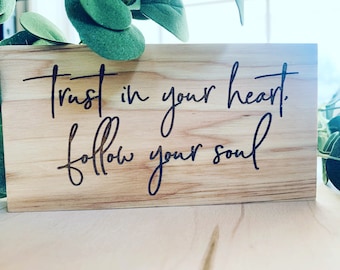 trust in your heart,
follow your soul